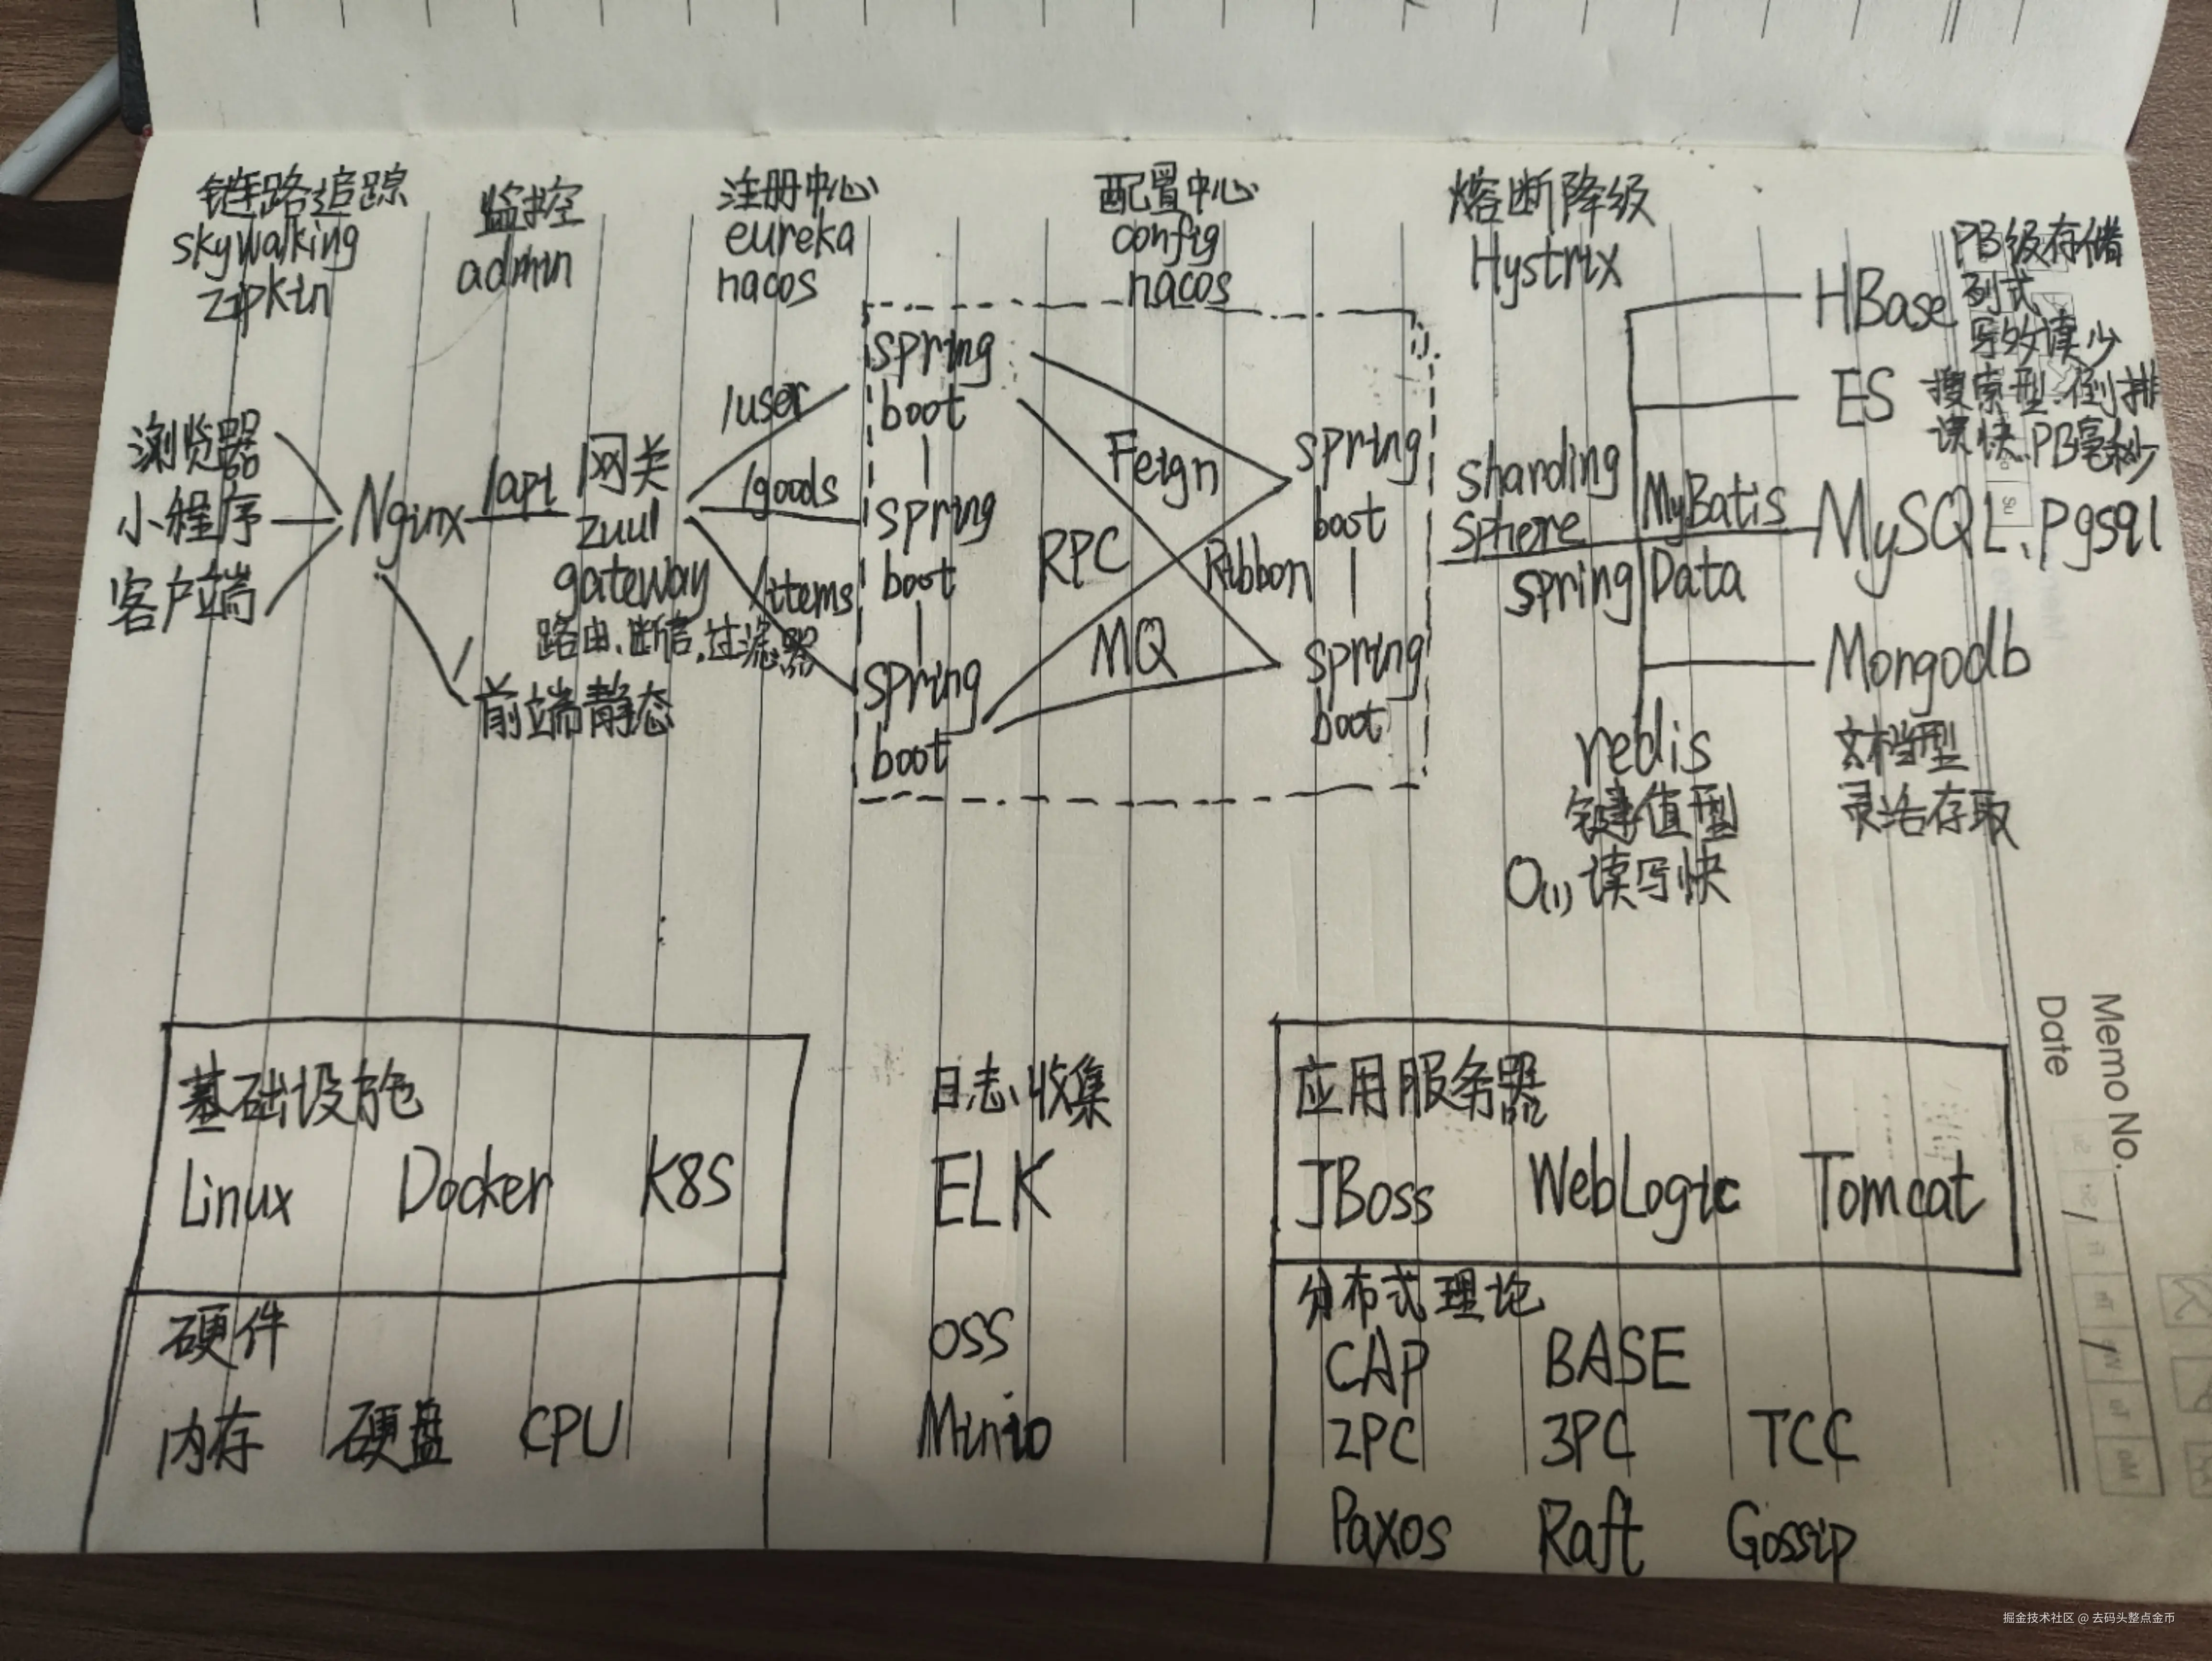 链路追踪
skywalking
zipkin
监控
admin
注册中心
eureka
nacos
配置中心
config
nacos
熔断降级
Hystrix
浏览器
小程序
客户端
Nginx
/api
/
前端静态
网关
zuul
gateway
路由、断言、过滤器
/user
/goods
/items
spring
boot
spring
boot
spring
boot
Feign
RPC
Ribbon
MQ
spring
boot
spring
boot
sharding
sphere
MyBatis
spring Data
HBase
PB级存储
列式
写多读少
ES
搜索型.倒排
读快.PB毫秒
MySQL、pgsql
Mongodb
文档型
灵活存取
redis
键值型
O(1)读写快
基础设施
Linux Docker K8S
硬件
内存 硬盘 CPU
日志收集
ELK
OSS
Minio
应用服务器
JBoss WebLogic Tomcat
分布式理论
CAP BASE
2PC 3PC TCC
Paxos Raft Gossip
Memo No.
Date
掘金技术社区 @ 去码头整点金币